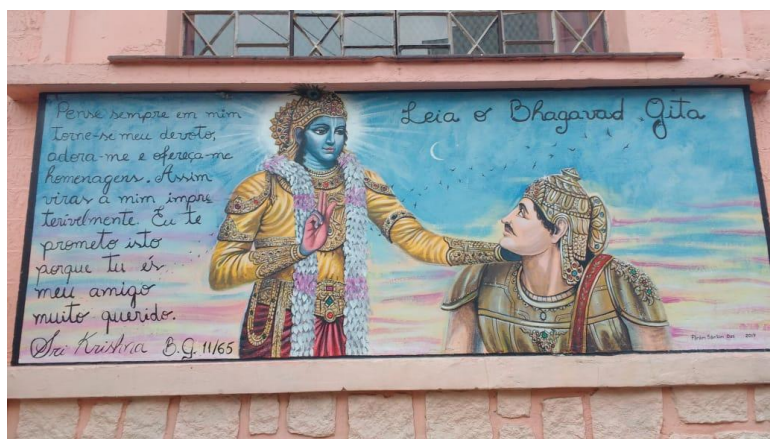 Pense sempre em mim
torne-se meu devoto,
adora-me e ofereça-me
homenagens. Assim
viras a mim impre
terivelmente. Eu te
prometo isto
porque tu és
meu amigo
muito querido.
Sri Krishna B.G. 11/65
Leia o Bhagavad Gita